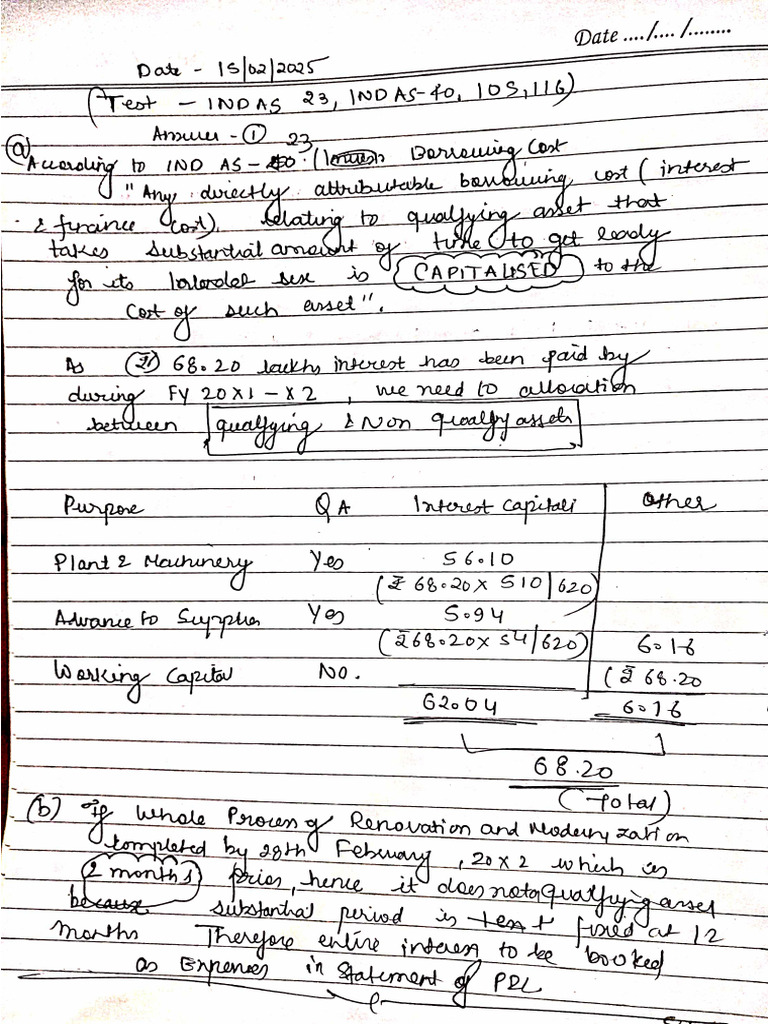 Date ..../..../........
Date - 15/02/2025
(Test - INDAS 23, INDAS-40, 105, 116)
Answer - ①
(a) According to IND AS - 23 (Borrowing Cost
"Any directly attributable borrowing cost (interest
& finance cost) relating to qualifying asset that
takes substantial amount of time to get ready
for its intended use is CAPITALISED to the
cost of such asset".
As ₹ 68.20 lackhs interest has been paid by
during FY 20X1-X2, we need to allocation
between qualifying & Non Qualify assets
Purpose QA Interest Capitali Other
Plant & Machinery Yes 56.10
(₹ 68.20 X 510/620)
Advance to Supplier Yes 5.94
(₹68.20 X 54/620) 6.16
Working Capital NO. (₹ 68.20
62.04 6.16
68.20
(Total)
(b) If Whole Process of Renovation and Modernization
completed by 28th February, 20X2 which is
2 months prior, hence it does not a Qualifying asset
because substantial period is fixed at 12
months Therefore entire interest to be booked
as Expenses in Statement of P&L